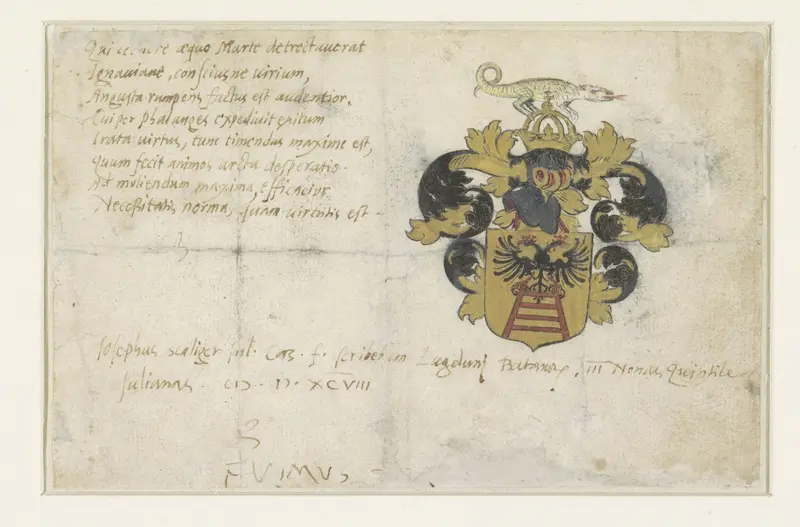 æquo Marte detrectaverat
Ignaviane, consciusne virium,
Angusta rumpens factus est audentior.
Cui per phalanges expedivit exitum
Irata virtus, tunc timendus maxime est,
Quum fecit animos arcta desperatio.
Ad moliendum maxima, efficacior
Necessitatis norma, quam virtutis est.
Josephus Scaliger Jul. Cæs. f. scribebam Lugduni Batavor. III Nonas Quintile
Julianas. CIƆ. IƆ. XCVIII
FVIMVS